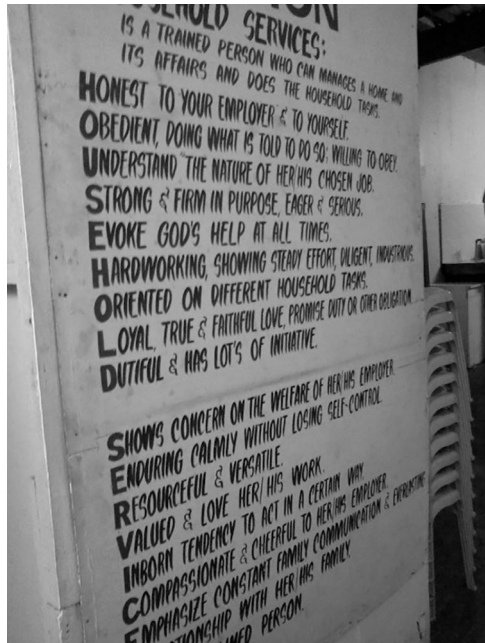 HOUSEHOLD SERVICES:
IS A TRAINED PERSON WHO CAN MANAGES A HOME AND
ITS AFFAIRS AND DOES THE HOUSEHOLD TASKS.
HONEST TO YOUR EMPLOYER & TO YOURSELF.
OBEDIENT, DOING WHAT IS TOLD TO DO SO; WILLING TO OBEY.
UNDERSTAND THE NATURE OF HER/HIS CHOSEN JOB.
STRONG & FIRM IN PURPOSE, EAGER & SERIOUS.
EVOKE GOD'S HELP AT ALL TIMES.
HARDWORKING, SHOWING STEADY EFFORT, DILIGENT, INDUSTRIOUS.
ORIENTED ON DIFFERENT HOUSEHOLD TASKS.
LOYAL, TRUE & FAITHFUL LOVE, PROMISE DUTY OR OTHER OBLIGATION.
DUTIFUL & HAS LOT'S OF INITIATIVE.
SHOWS CONCERN ON THE WELFARE OF HER/HIS EMPLOYER.
ENDURING CALMLY WITHOUT LOSING SELF-CONTROL.
RESOURCEFUL & VERSATILE.
VALUED & LOVE HER/HIS WORK.
INBORN TENDENCY TO ACT IN A CERTAIN WAY
COMPASSIONATE & CHEERFUL TO HER/HIS EMPLOYER.
EMPHASIZE CONSTANT FAMILY COMMUNICATION & EVERLASTING
WITH HER/HIS FAMILY.
PERSON.